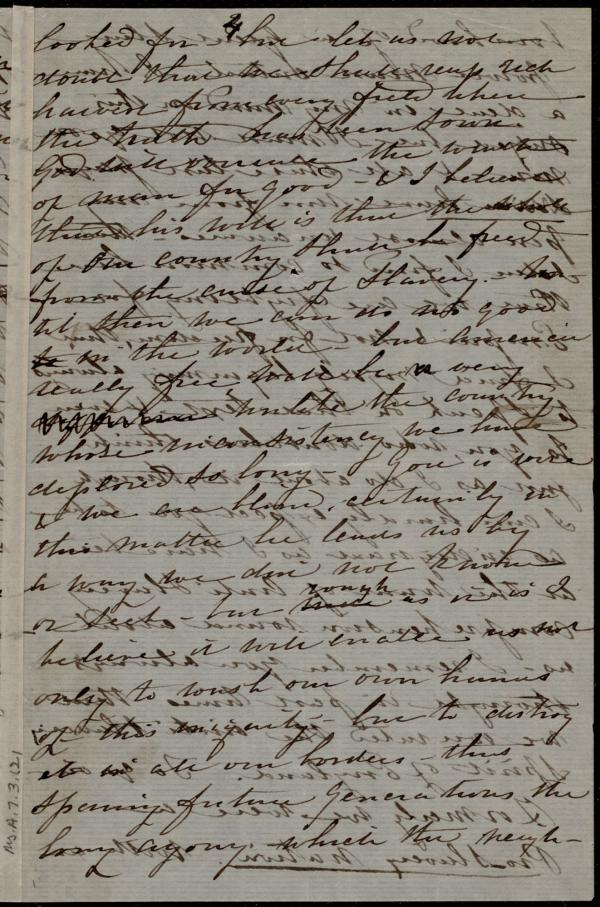 4
looked for but let us not
doubt that we shall reap rich
harvest from every field where
the truth has been sown.
God will overrule the wrath
of man for good & I believe
his will is that
of our country shall be freed
from the curse of Slavery. Un-
til then we can do no good
in the world but America
really free will be a very
unlike the country
whose inconsistency we have
deplored so long - God is wise
& we are blind. certainly in
this matter he leads us by
a way we did not know
or seek - but rough as it is I
believe it will enable us not
only to wash our own hands
of this iniquity - but to destroy
it in all our borders - thus
sparing future generations the
long agony, which the neigh-
Ms.A.7.3.(2)